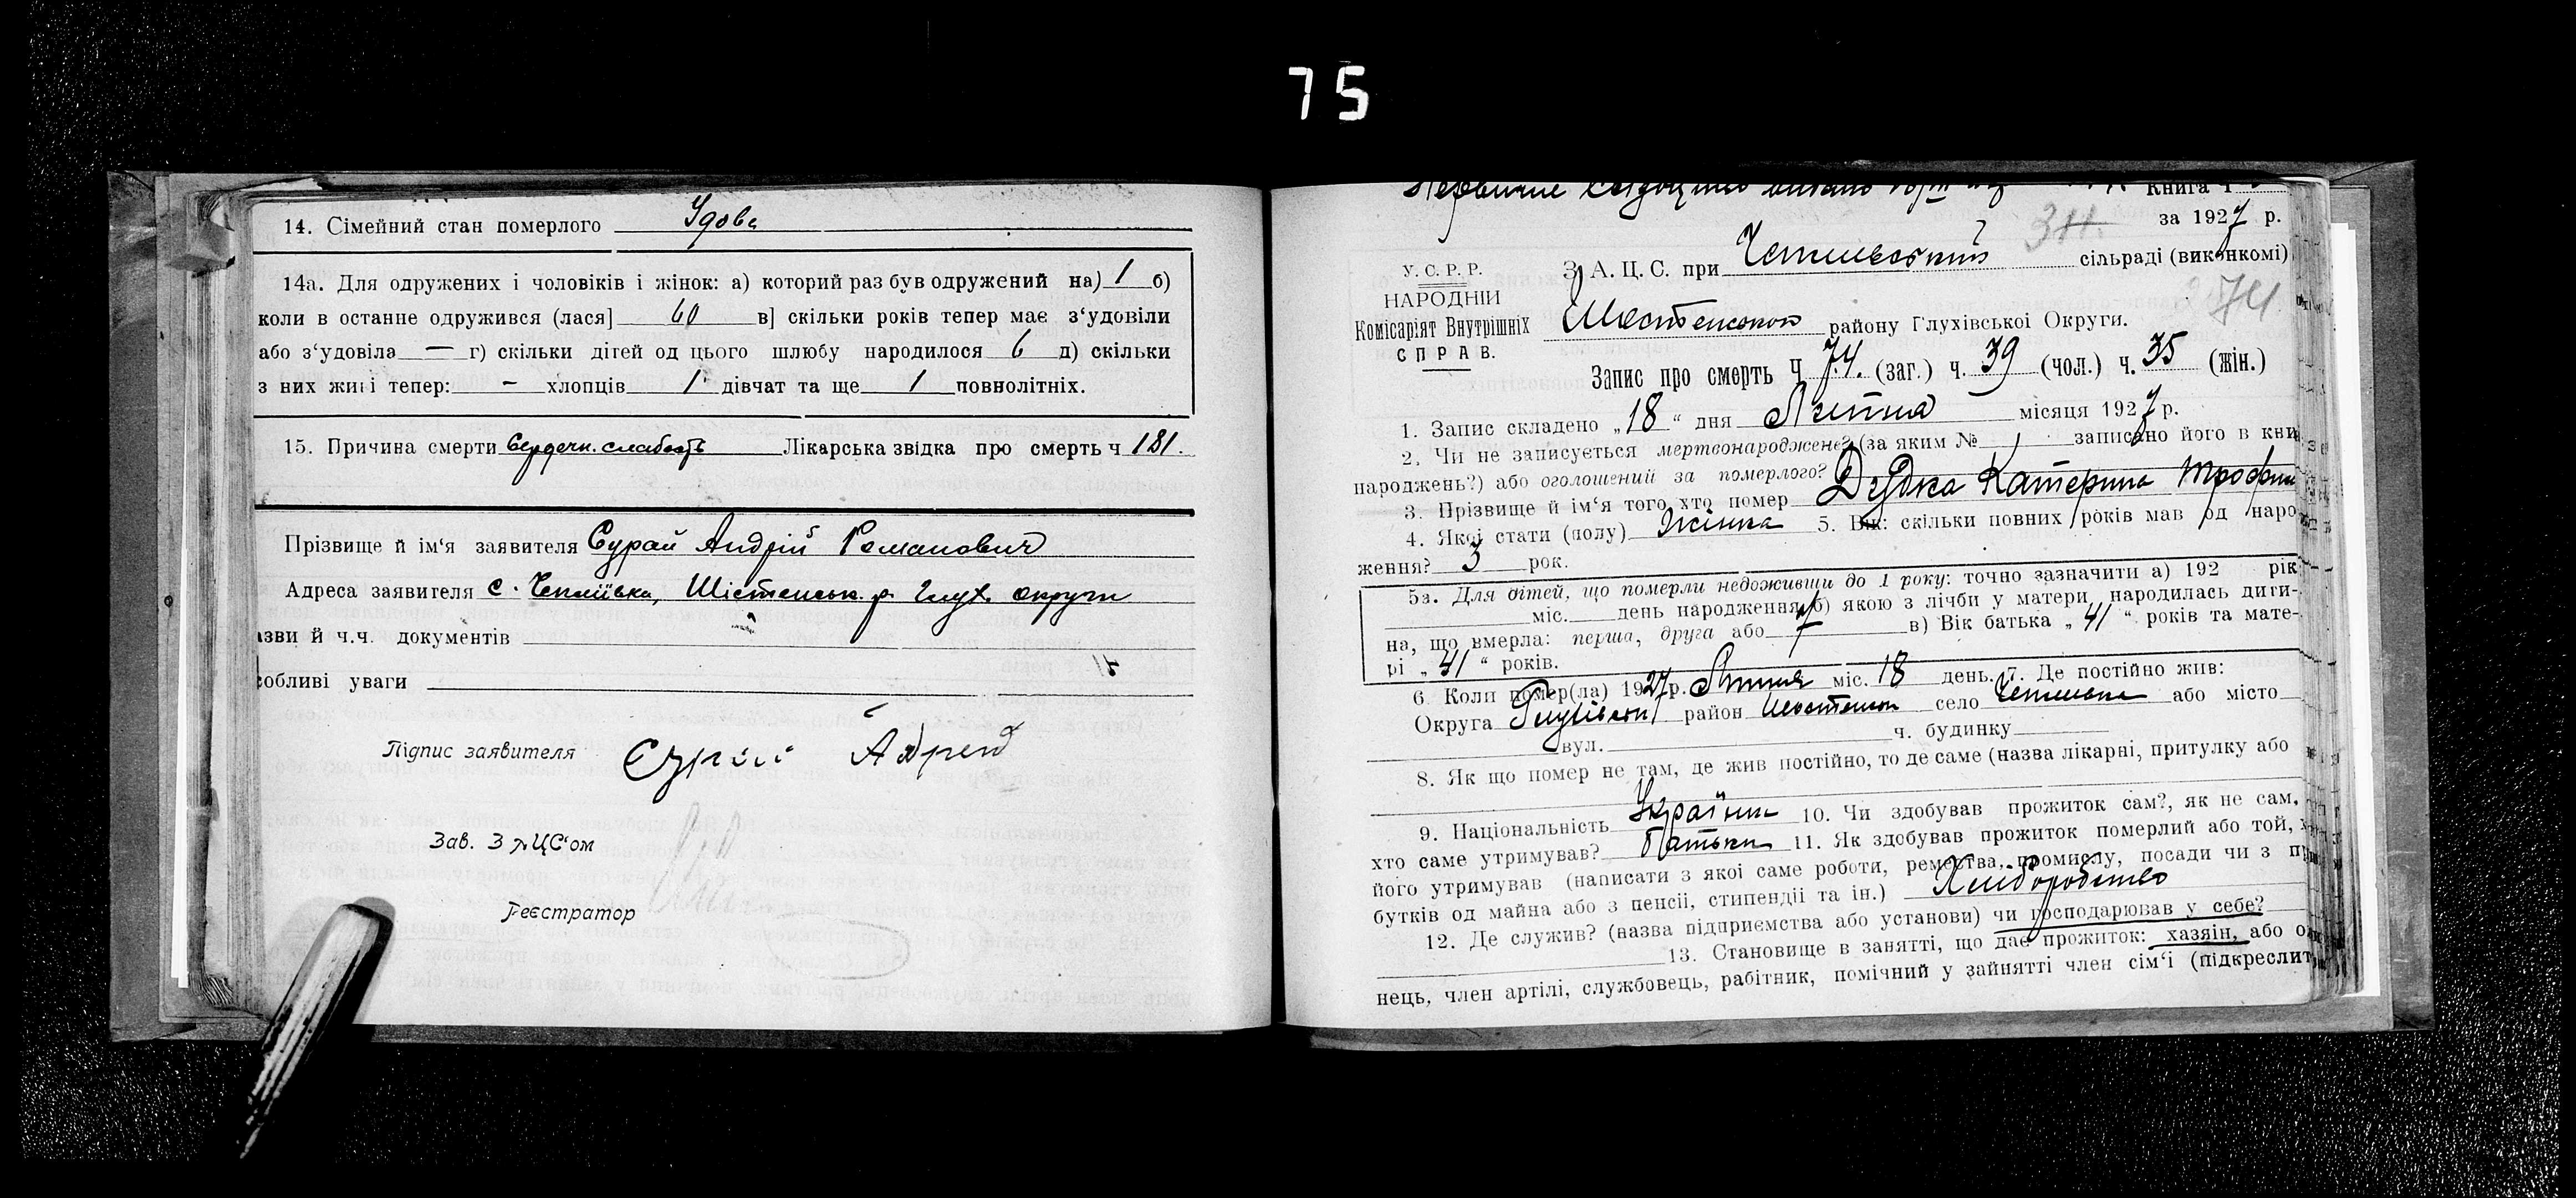 75
14. Сімейний стан померлого Удова
14а. Для одружених і чоловіків і жінок: а) которий раз був одружений на) 1 б)
коли в останнє одружився (лася] 60 в] скільки років тепер має з‘удовіли
або з‘удовіла — г) скільки дітей од цього шлюбу народилося 6 д) скільки
з них живі тепер: – хлопців 1 дівчат та ще 1 повнолітніх.
15. Причина смерти Сердечн. слабость Лікарська звідка про смерть ч 181.
Прізвище й ім‘я заявителя Сурай Андрій Романович
Адреса заявителя с. Чепліївка, Шістенськ. р. Глух. округи
азви й ч.ч. документів
собливі уваги
Підпис заявителя Сурай
Зав. ЗАЦС‘ом
Реєстратор
Книга ч
за 1927 р.
З. А. Ц. С. при сільраді (виконкомі)
У. С. Р. Р.
НАРОДНІЙ
Комісаріят Внутрішніх
СПРАВ.
74
району Глухівської Округи.
Запис про смерть ч 74. (заг.) ч. 39 (чол.) ч. 35 (жін.)
1. Запис складено „18“ дня Липня місяця 1927 р.
2. Чи не записується мертвонароджене? (за яким № записано його в кни
народжень?) або оголошений за померлого?
3. Прізвище й ім‘я того хто помер Дудка Катерина Трофим
4. Якої стати (полу) Жінка 5. Вік: скільки повних років мав од наро
ження? 3 рок.
5а. Для дітей, що померли недоживши до 1 року: точно зазначити а) 192 рік
міс. день народження б) якою з лічби у матери народилась дити-
на, що вмерла: перша, друга або 7 в) Вік батька „41“ років та мате-
рі „41“ років.
6. Коли помер(ла) 1927 р. Липня міс. 18 день. 7. Де постійно жив:
Округа район село або місто
вул. ч. будинку
8. Як що помер не там, де жив постійно, то де саме (назва лікарні, притулку або
9. Національність Україн 10. Чи здобував прожиток сам?, як не сам,
хто саме утримував? Батьки 11. Як здобував прожиток померлий або той,
його утримував (написати з якої саме роботи, ремества, промислу, посади чи з п
бутків од майна або з пенсії, стипендії та ін.) Хліборобство
12. Де служив? (назва підприємства або установи) чи господарював у себе?
13. Становище в занятті, що дає прожиток: хазяїн, або о
нець, член артілі, службовець, рабітник, помічний у зайнятті член сім‘ї (підкреслит